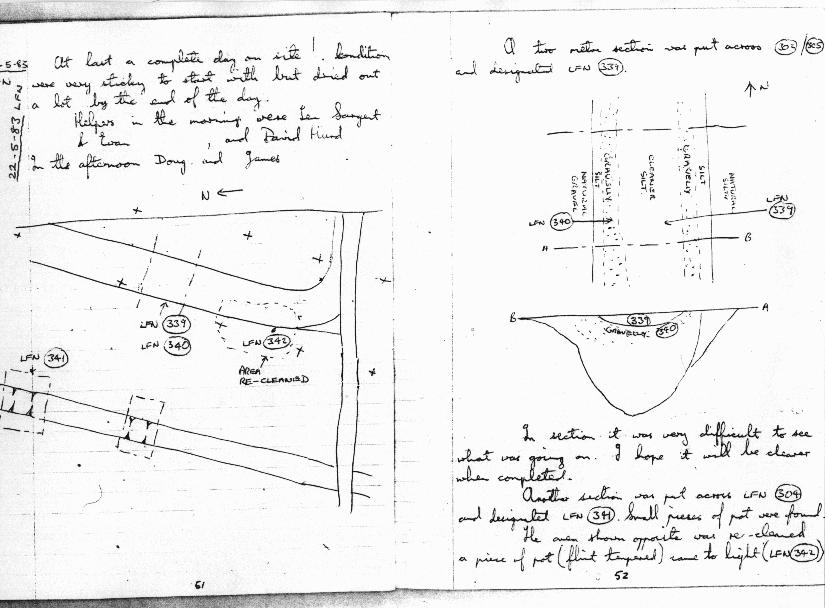 -5-83 At last a complete day on site! Condition
were very sticky to start with but dried out
a lot by the end of the day.
Helpers in the morning were Len Sargent
& Ivan , and David Hurd
In the afternoon Doug and James
22-5-83 LFN
N
LFN 339
LFN 340
LFN 342
AREA
RE-CLEANED
LFN 341
51
A two metre section was put across 303/305
and designated LFN 339.
N
NATURAL
GRAVEL
SILT
GRAVELLY
CLEANER
SILT
GRAVELLY
SILT
NATURAL
SILT
LFN 340
LFN
339
A B
B A
339
GRAVELLY 340
In section it was very difficult to see
what was going on. I hope it will be clearer
when completed.
Another section was put across LFN 304
and designated LFN 341. Small pieces of pot were found.
The area shown opposite was re-cleaned
a piece of pot (flint tempered) came to light (LFN 342)
52